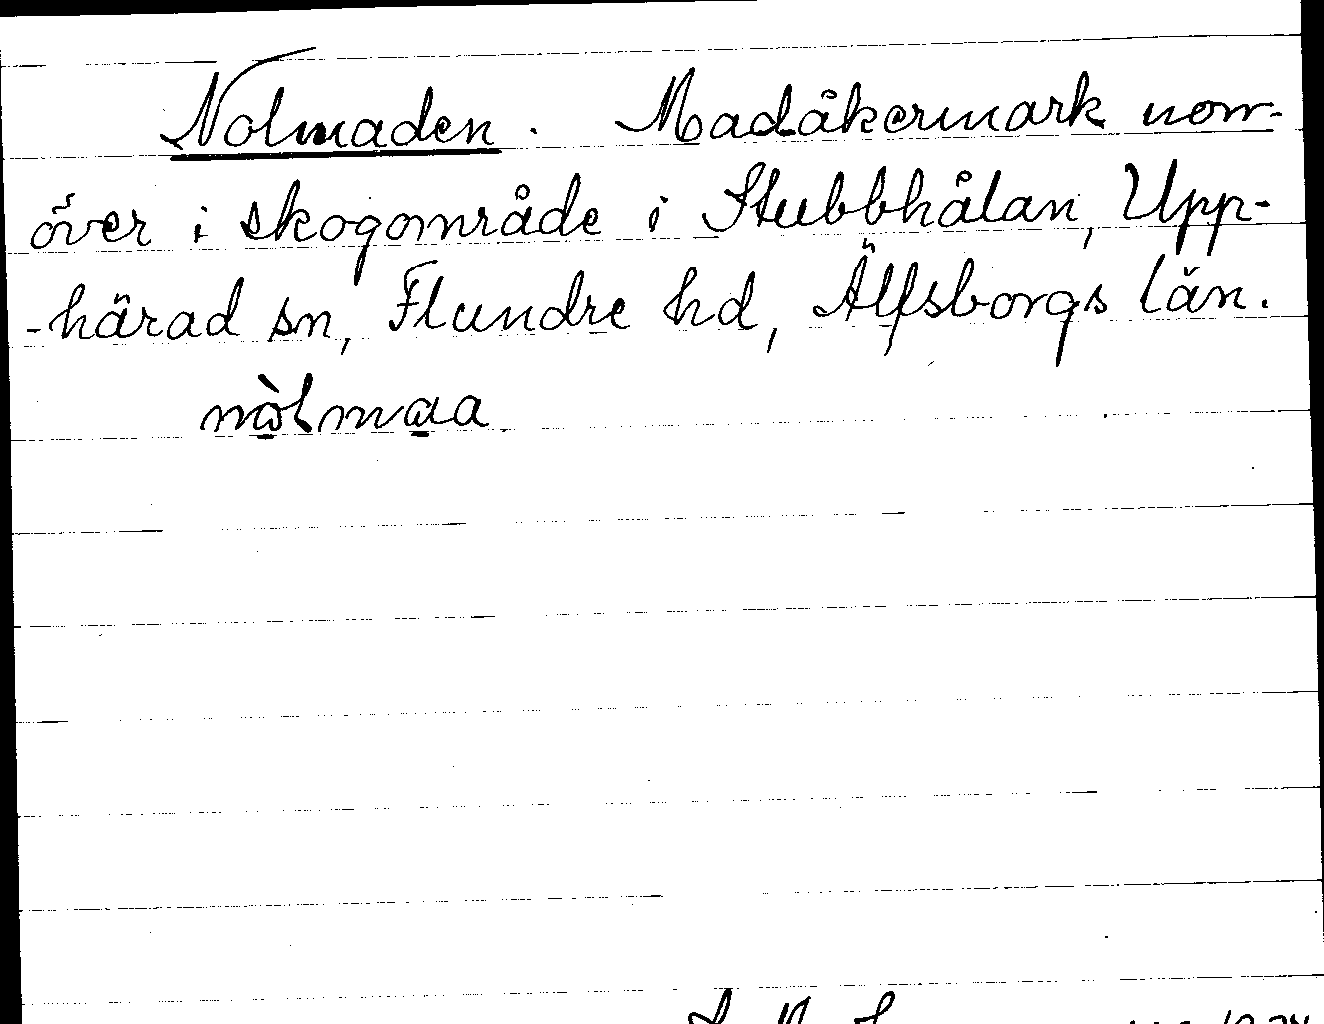 Nolmaden. Madåkermark norr-
över i skogområde i Stubbhålan, Upp-
-härad sn, Flundre hd, Älfsborgs län.
nòlmaa